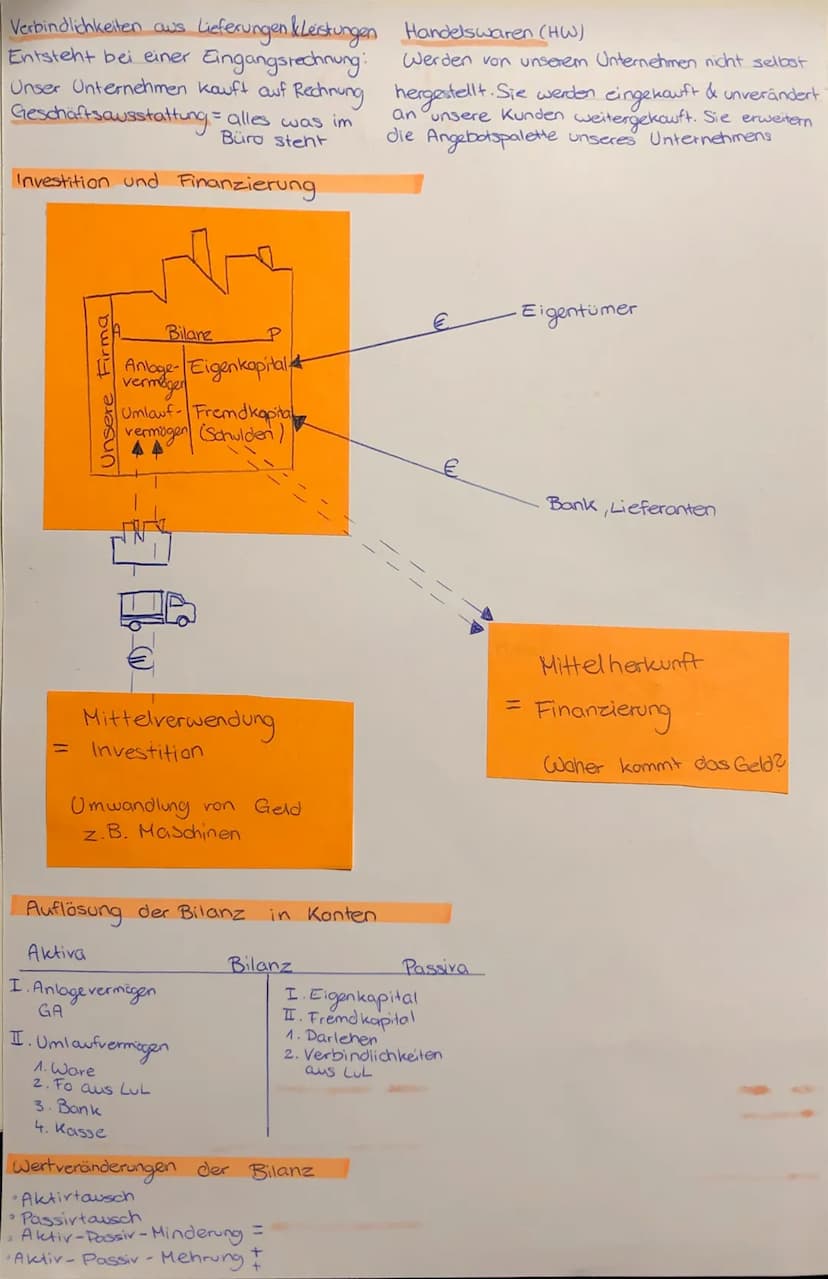 Verbindlichkeiten aus Lieferungen & Leistungen
Entsteht bei einer Eingangsrechnung:
Unser Unternehmen kauft auf Rechnung
Geschäftsausstattung = alles was im
Büro steht
Handelswaren (HW)
Werden von unserem Unternehmen nicht selbst
hergestellt. Sie werden eingekauft & unverändert
an unsere Kunden weitergekauft. Sie erweitern
die Angebotspalette unseres Unternehmens
Investition und Finanzierung
Unsere Firma
A Bilanz P
Anlage-
vermögen
Eigenkapital
Umlauf-
vermögen
Fremdkapital
(Schulden)
€
Eigentümer
€
Bank, Lieferanten
€
Mittelherkunft
= Finanzierung
Woher kommt das Geld?
Mittelverwendung
= Investition
Umwandlung von Geld
z.B. Maschinen
Auflösung der Bilanz in Konten
Aktiva Bilanz Passiva
I. Anlagevermögen
GA
II. Umlaufvermögen
1. Ware
2. Fo aus LuL
3. Bank
4. Kasse
I. Eigenkapital
II. Fremdkapital
1. Darlehen
2. Verbindlichkeiten
aus LuL
Wertveränderungen der Bilanz
• Aktivtausch
• Passivtausch
• Aktiv-Passiv-Minderung =
• Aktiv-Passiv-Mehrung ++